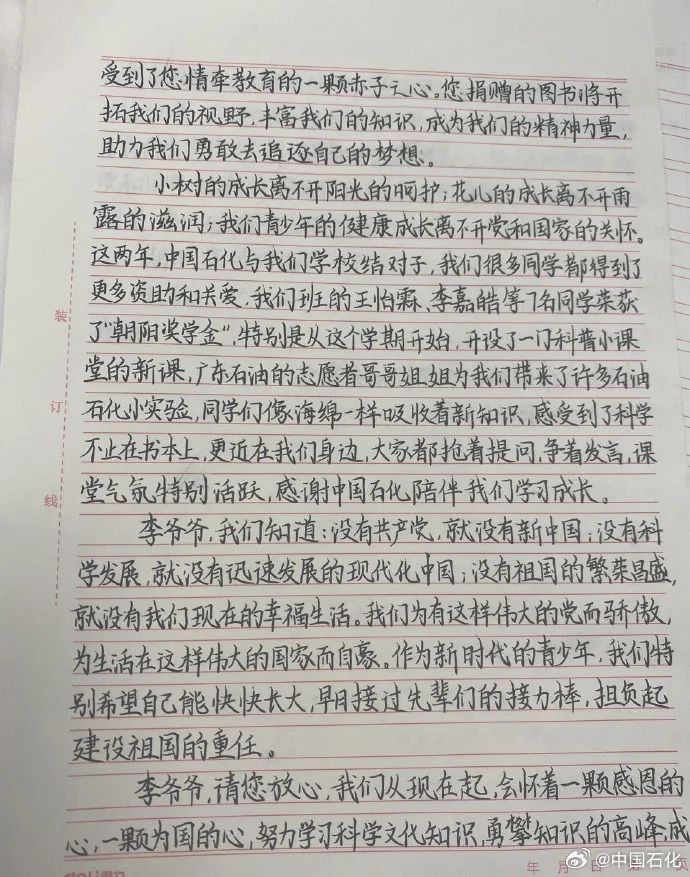 受到了您情牵教育的一颗赤子之心。您捐赠的图书将开
拓我们的视野,丰富我们的知识,成为我们的精神力量,
助力我们勇敢去追逐自己的梦想。
小树的成长离不开阳光的呵护;花儿的成长离不开雨
露的滋润;我们青少年的健康成长离不开党和国家的关怀。
这两年,中国石化与我们学校结对子,我们很多同学都得到了
更多资助和关爱,我们班的王怡霖、李嘉皓等7名同学荣获
了“朝阳奖学金”,特别是从这个学期开始,开设了一门科普小课
堂的新课,广东石油的志愿者哥哥姐姐为我们带来了许多石油
石化小实验,同学们像海绵一样吸收着新知识,感受到了科学
不止在书本上,更近在我们身边,大家都抢着提问,争着发言,课
堂气氛特别活跃,感谢中国石化陪伴我们学习成长。
李爷爷,我们知道:没有共产党,就没有新中国;没有科
学发展,就没有迅速发展的现代化中国;没有祖国的繁荣昌盛,
就没有我们现在的幸福生活。我们为有这样伟大的党而骄傲,
为生活在这样伟大的国家而自豪。作为新时代的青少年,我们特
别希望自己能快快长大,早日接过先辈们的接力棒,担负起
建设祖国的重任。
李爷爷,请您放心,我们从现在起,会怀着一颗感恩的
心,一颗为国的心,努力学习科学文化知识,勇攀知识的高峰,成
装
订
线
deli得力
年 月 日 第 页
@中国石化